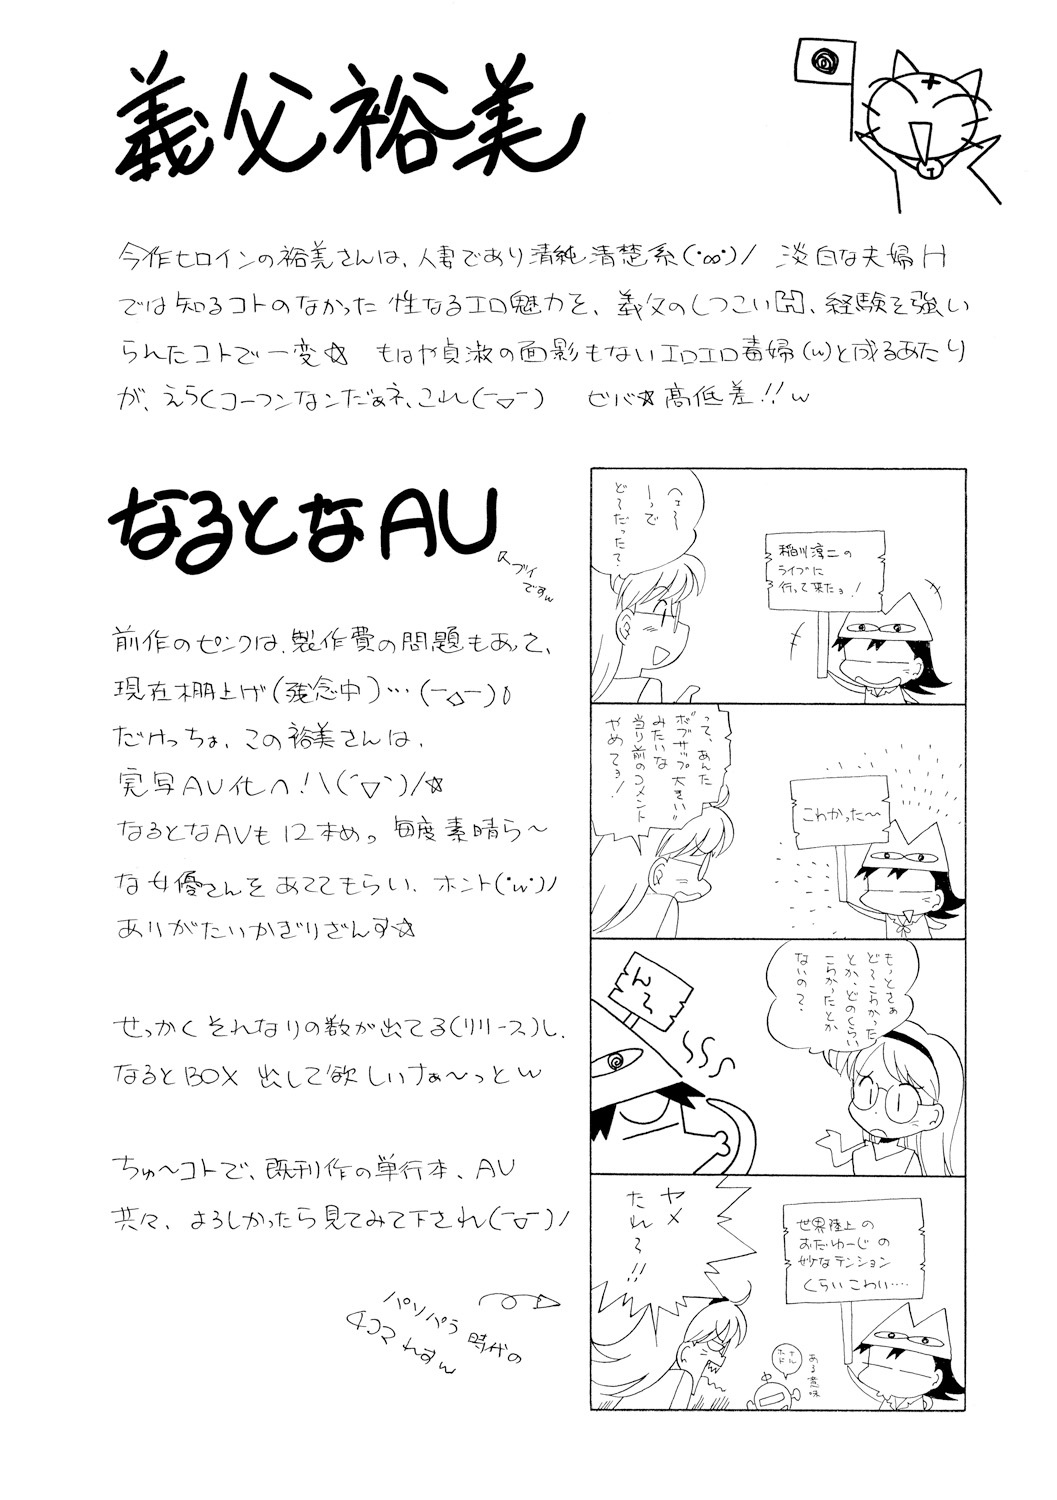 義父裕美
今作ヒロインの裕美さんは、人妻であり清純清楚系(・∞・)/ 淡白な夫婦H
では知るコトのなかった 性なるエロ魅力を、義父のしつこいH、経験を強い
られたコトで一変☆ もはや貞淑の面影もないエロエロ毒婦(w)と成るあたり
が、えらくコーフンなンだぁネ、これ(ー▽ー) ビバ☆高低差!!w
なるとなAV
↖ブイ
ですw
前作のピンクは、製作費の問題もあって、
現在棚上げ(残念中)…(ー△ー)０
だけっちょ、この裕美さんは、
実写AV化へ!\(´▽`)/☆
なるとなAVも12本めっ 毎度素晴ら〜
な女優さんをあててもらい、ホント(・w・)/
ありがたいかぎりざんす☆
せっかくそれなりの数が出てる(リリース)し、
なるとBOX 出して欲しいけぁ〜っとw
ちゅ〜コトで、既刊作の単行本、AV
共々、よろしかったら見てみて下され(ー▽ー)/
パソパラ時代の
4コマ れすw
へぇ〜
ーって
ど〜だった?
稲川淳二の
ライブに
行って来たョ!
って、あんた
ボブサップ大きい"
みたいな
当り前のコメント
やめてョ!
こわかった〜
もっとさぁ
ど〜こわかった
とか、どのくらい
こわかったとか
ないの?
ん〜
ヤメ
たれ〜!!
世界陸上の
おだゆーじの
妙なテンション
くらいこわい‥‥
ナル
ホド
ある意味